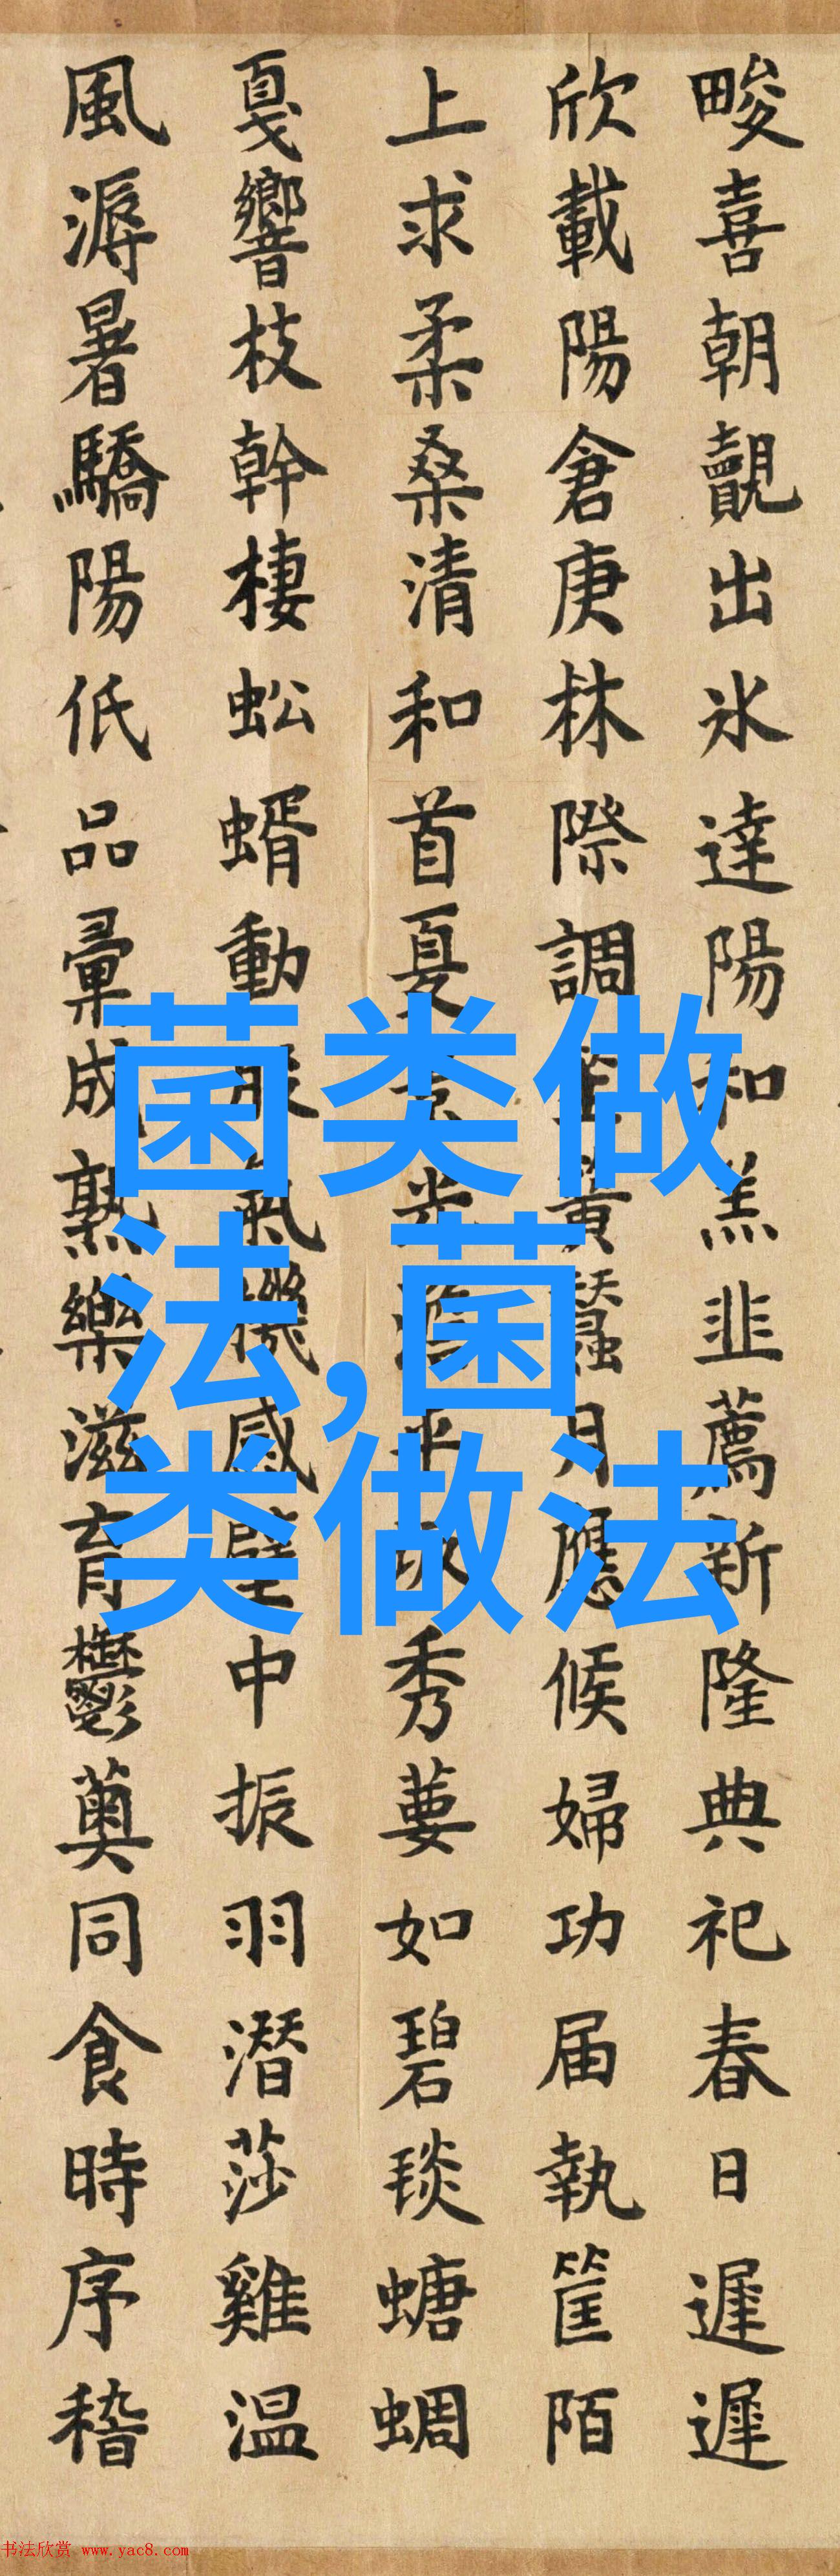 畯喜朝覿出氷達陽和羔韭薦新隆典祀春日遲遲
欣載陽倉庚林際調簧蠶月應候婦功届執筐陌
上求柔桑清和首夏光秀葽如碧琰螗蜩
戛響枝幹棲蚣蝑動股氣機感壁中振羽潛莎雞温
風溽暑驕陽低品彙成熟樂滋育鬱薁同食時序稽
菌类做
法,菌
类做法
书法欣赏 www.yac8.com